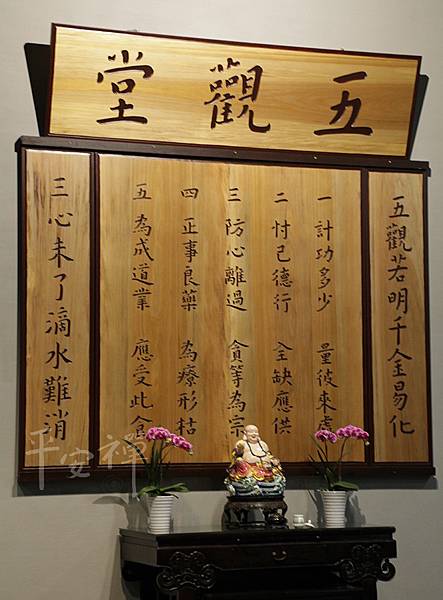 五觀堂
五觀若明千金易化
一 計功多少 量彼來處
二 忖己德行 全缺應供
三 防心離過 貪等為宗
四 正事良藥 為療形枯
五 為成道業 應受此食
三心未了滴水難消
平安禪